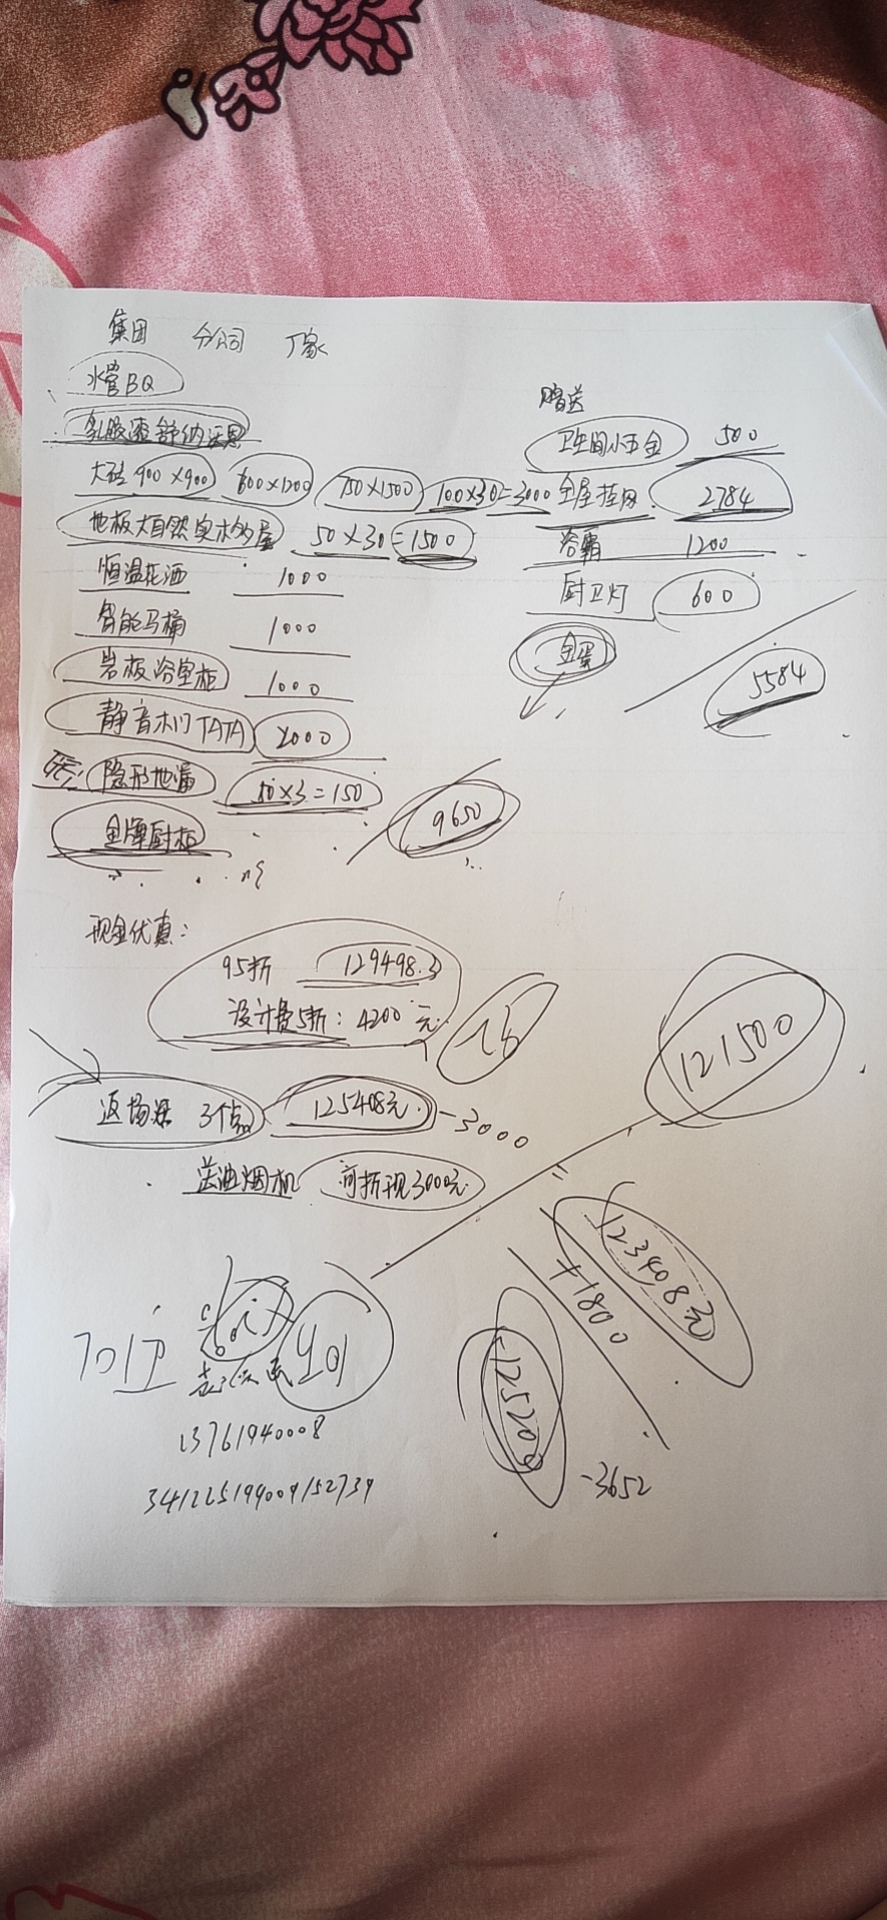 集团 分公司 厂家
水管BQ
乳胶漆
大砖 900×900 600×1200 750×1500 100×30=3000
地板大自然实木多层 50×30=1500
恒温花洒 1000
智能马桶 1000
岩板浴室柜 1000
静音木门TATA 2000
隐形地漏 50×3=150
金牌厨柜
9650
赠送
卫生间小五金 500
全屋挂网 2784
浴霸 1200
厨卫灯 600
金蛋
5584
现金优惠:
95折 129498.3
设计费5折: 4200元
返场 3个点 125408元 -3000
送油烟机 可折现3000元
121500
123408元
+1800
125200
-3652
13761940008